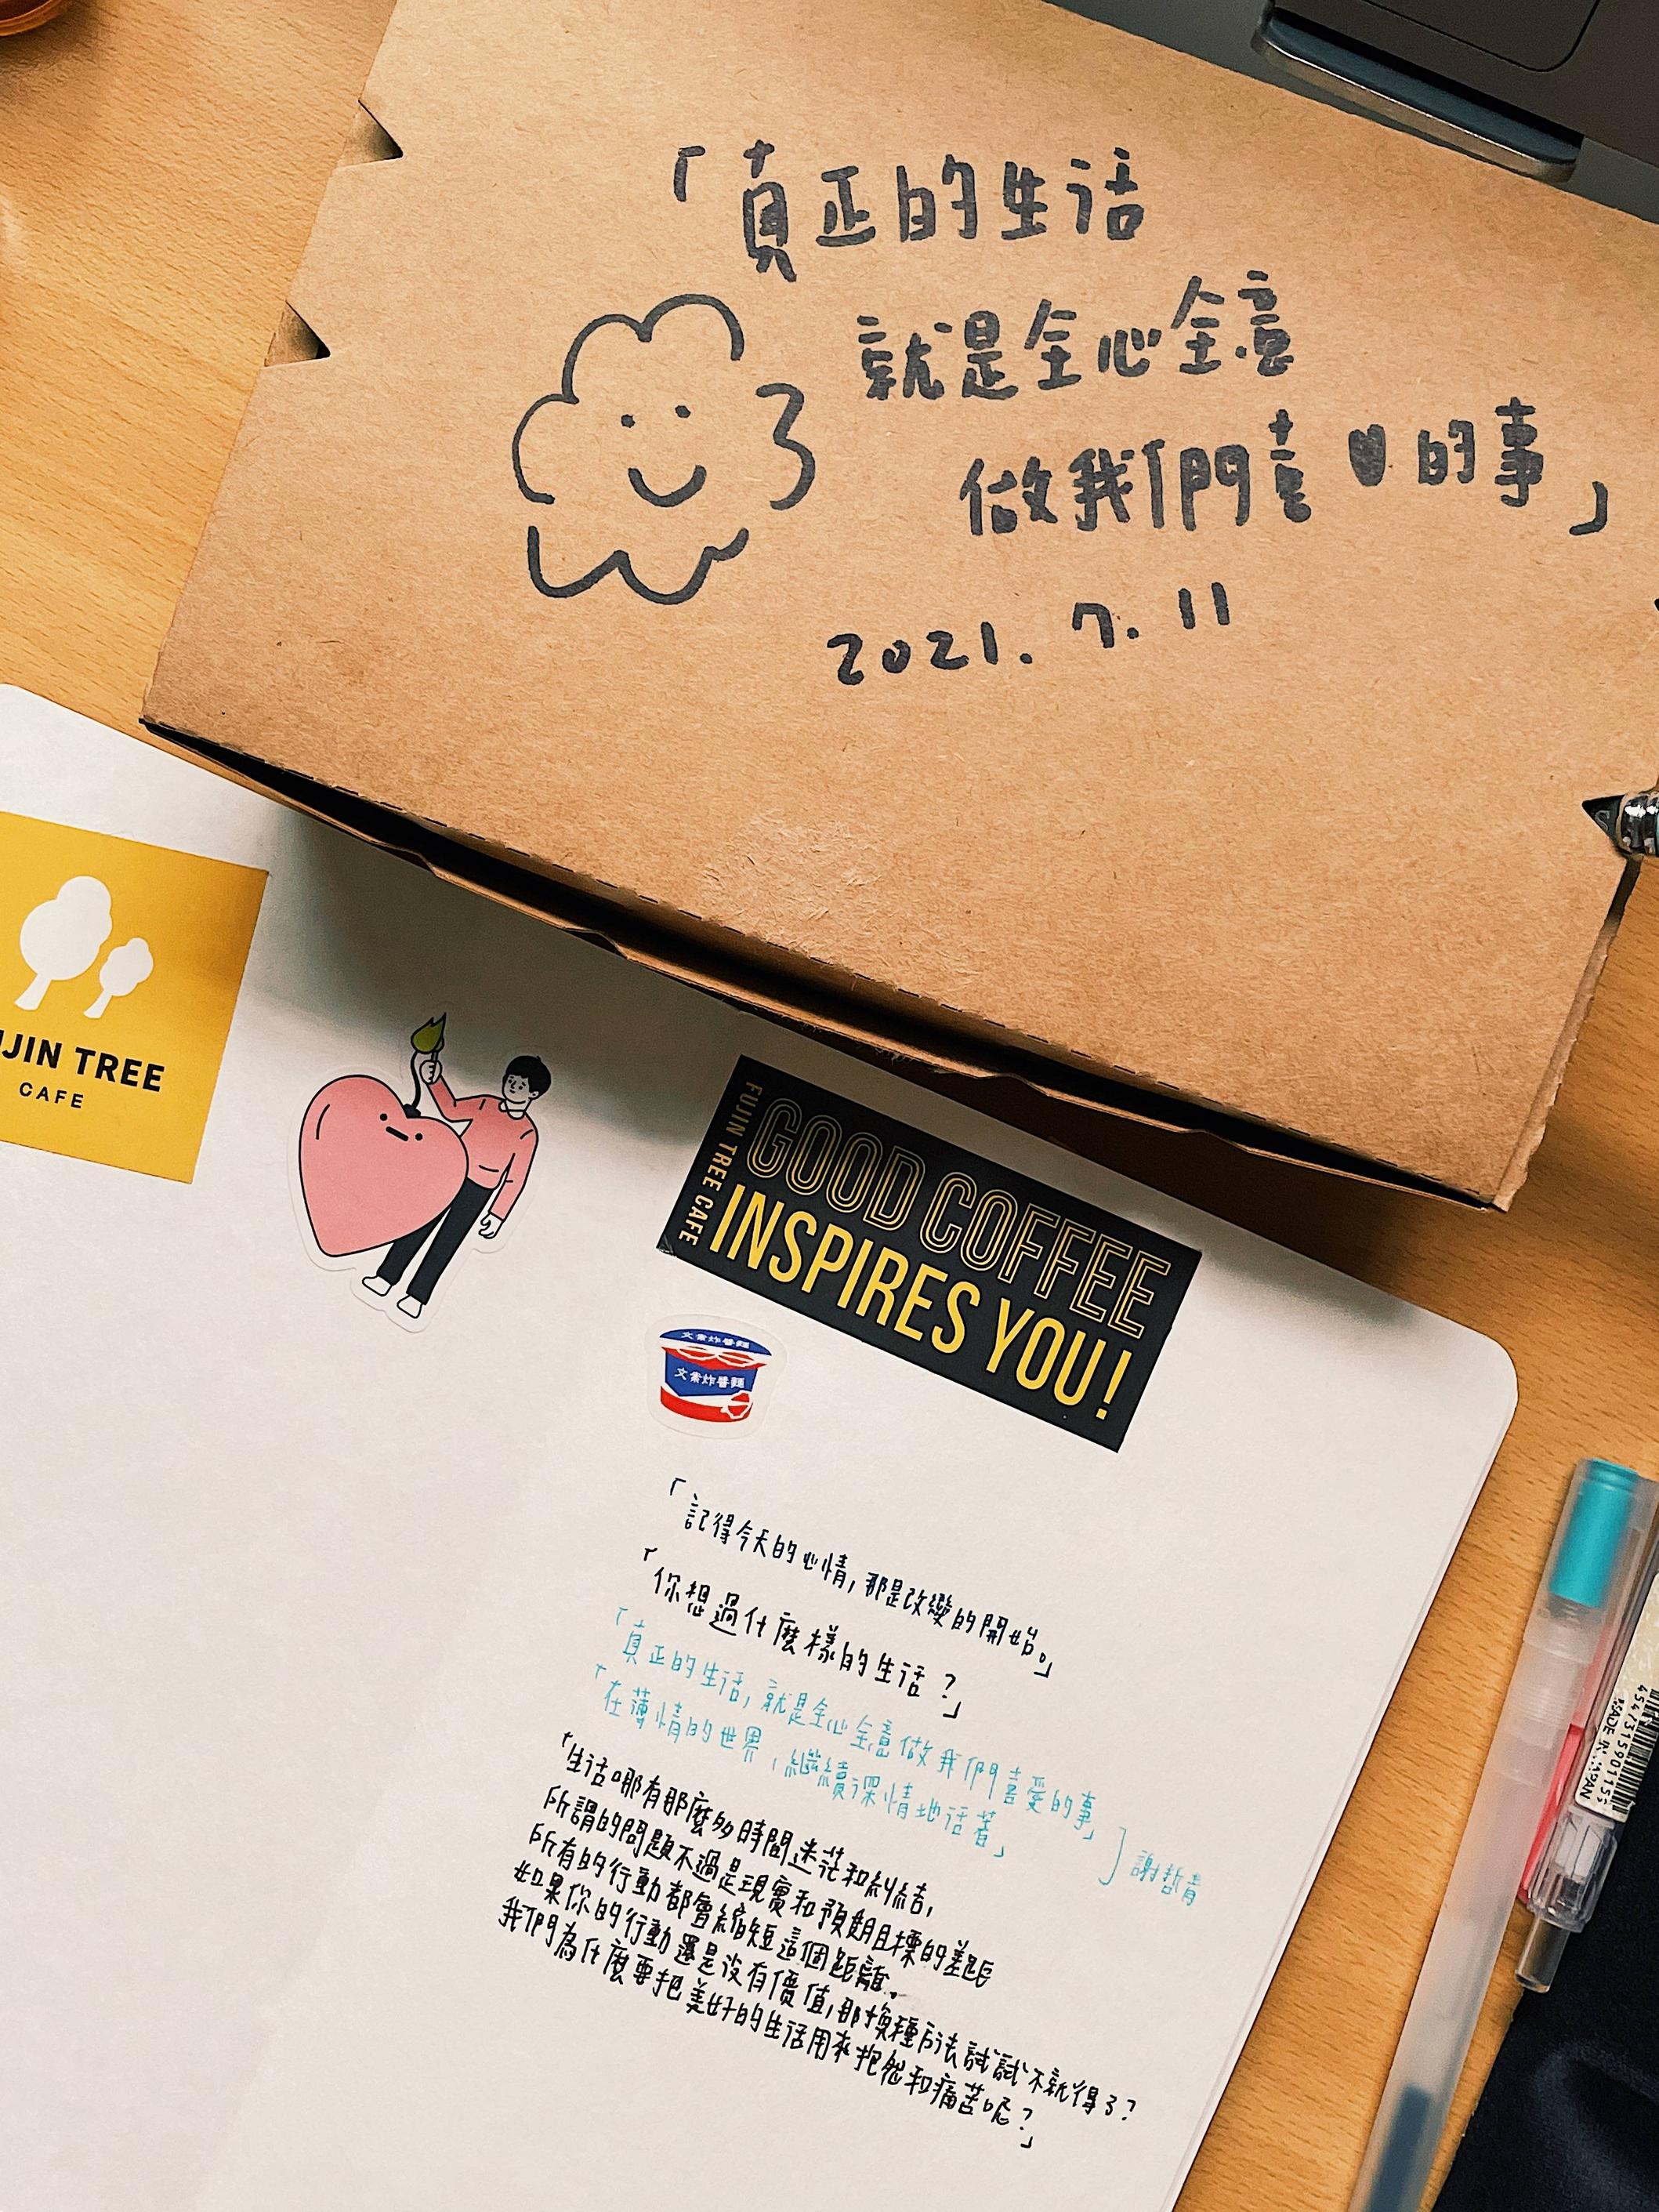 「真正的生活
就是全心全意
做我們喜的事」
2021.7.11
UJIN TREE
CAFE
FUJIN TREE CAFE
GOOD COFFEE
INSPIRES YOU!
炸醬麵
炸醬麵
「記得今天的心情,那是改變的開始。」
「你想過什麼樣的生活?」
「真正的生活,就是全心全意做我們喜愛的事」
「在薄情的世界,繼續深情地活著」
謝哲青
「生活哪有那麼多時間迷茫和糾結,
所謂的問題不過是現實和預期目標的差距
所有的行動都會縮短這個距離。
如果你的行動還是沒有價值,那換種方法試試不就得了?
我們為什麼要把美好的生活用來抱怨和痛苦呢?」